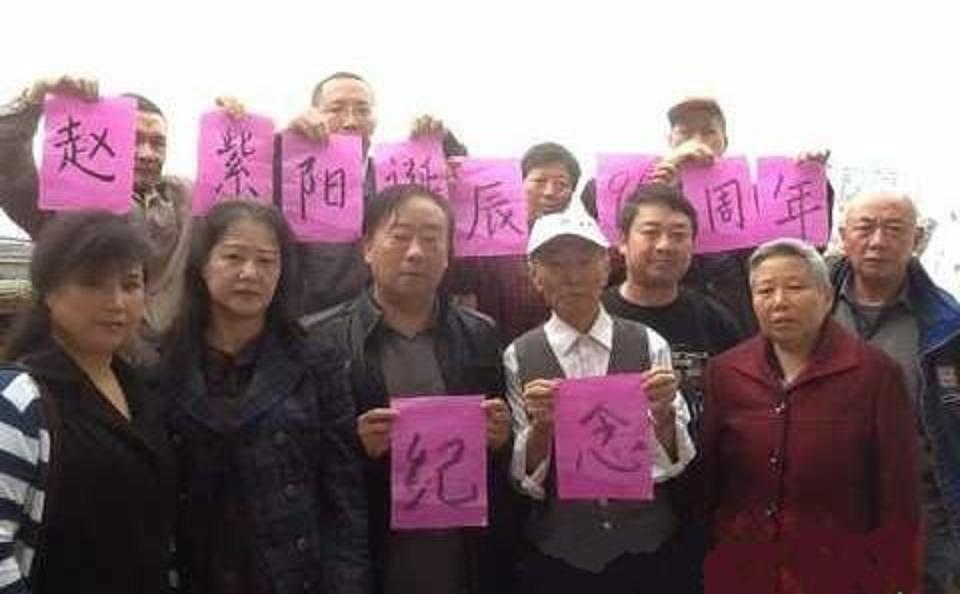 赵紫阳诞辰9周年
纪念